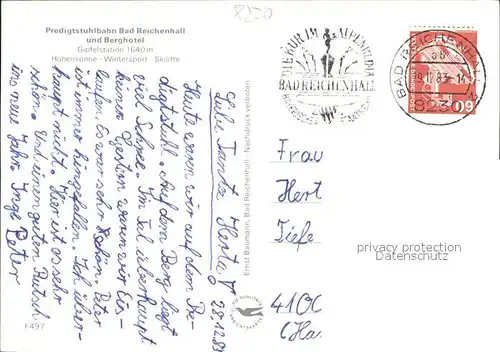 8230
Predigtstuhlbahn Bad Reichenhall
und Berghotel
Gipfelstation 1640 m
Höhensonne · Wintersport · Skilifte
Liebe Tante Herta!
28.12.83
Heute waren wir auf dem Pre-
digtstuhl. Auf dem Berg liegt
viel Schnee. Im Tal überhaupt
keiner. Gestern waren wir Eis-
laufen. Es war sehr schön. Peter
ist immer hingefallen. Ich über-
haupt nicht. Hier ist es sehr
schön. Und einen guten Rutsch
ins neue Jahr. Inge
Peter
F497
Ernst Baumann, Bad Reichenhall · Nachdruck verboten
DIE KUR IM ALPENKLIMA
BAD REICHENHALL
BAYERISCHES STAATSBAD
BAD REICHENHALL
83-14
8230
60
Frau
Hert
Tiefe
4100
privacy protection
Datenschutz